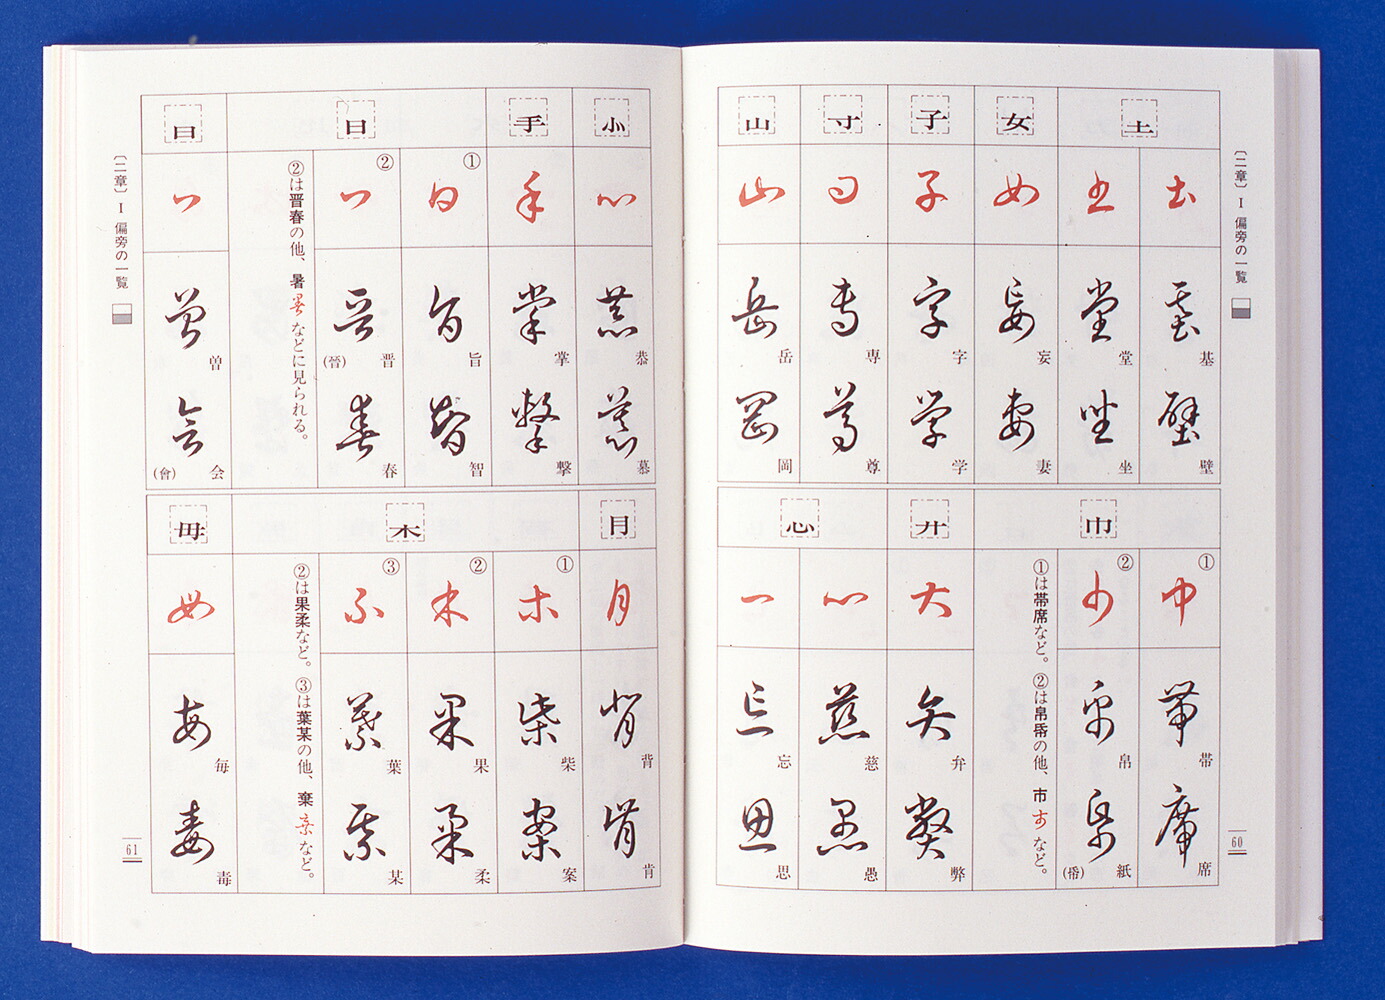 〔二章〕 Ⅰ 偏旁の一覧
60
土
女
子
寸
山
基
壁
堂
坐
妄
妻
字
学
専
尊
岳
岡
巾
廾
心
①
帯
席
②
帛
紙
(帋)
①は帯席など。②は帛帋の他、市 など。
弁
弊
慈
愚
忘
思
〔二章〕 Ⅰ 偏旁の一覧
61
手
日
曰
恭
慕
掌
撃
①
旨
智
②
晋
(晉)
春
②は晋春の他、暑 などに見られる。
曽
会
(會)
月
木
毋
背
肯
①
柴
案
②
果
柔
③
葉
某
②は果柔など。③は葉某の他、棄 など。
毎
毒